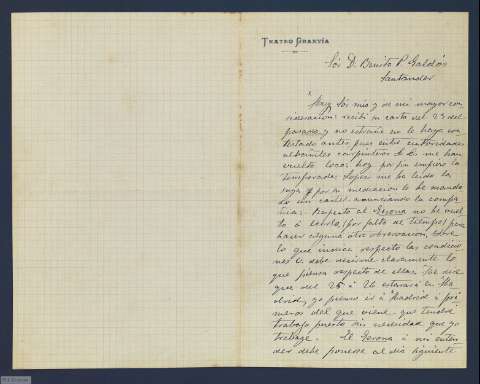 TEATRO GRANVÍA
Sór D. Benito P. Galdós
Santander
Muy Sór mío y de mi mayor con
sideracion: recibí su carta del 23 del
pasado y no estrañe no le haya con
testado antes pues entre autoridades
albañiles carpinteros &. &. me han
vuelto loco; hoy por fin empiezo la
temporada: Lopez me ha leido la
suya y por su mediacion le he manda
do un cartel anunciando la compa
ñia: Respecto al Gerona no he vuel
to á leerla, (por falta de tiempo) para
hacer alguna otra observacion, sobre
lo que indica respecto las condicio
nes V. debe decirme claramente lo
que piensa respecto de ellas. Me dice
que del 25 á 26 estará en Ma
drid, yo pienso ir á Madrid á pri
meros del que viene, que tendré
trabajo puesto sin necesidad que yo
trabaje. El Gerona á mi enten
der debe ponerse al dia siguiente